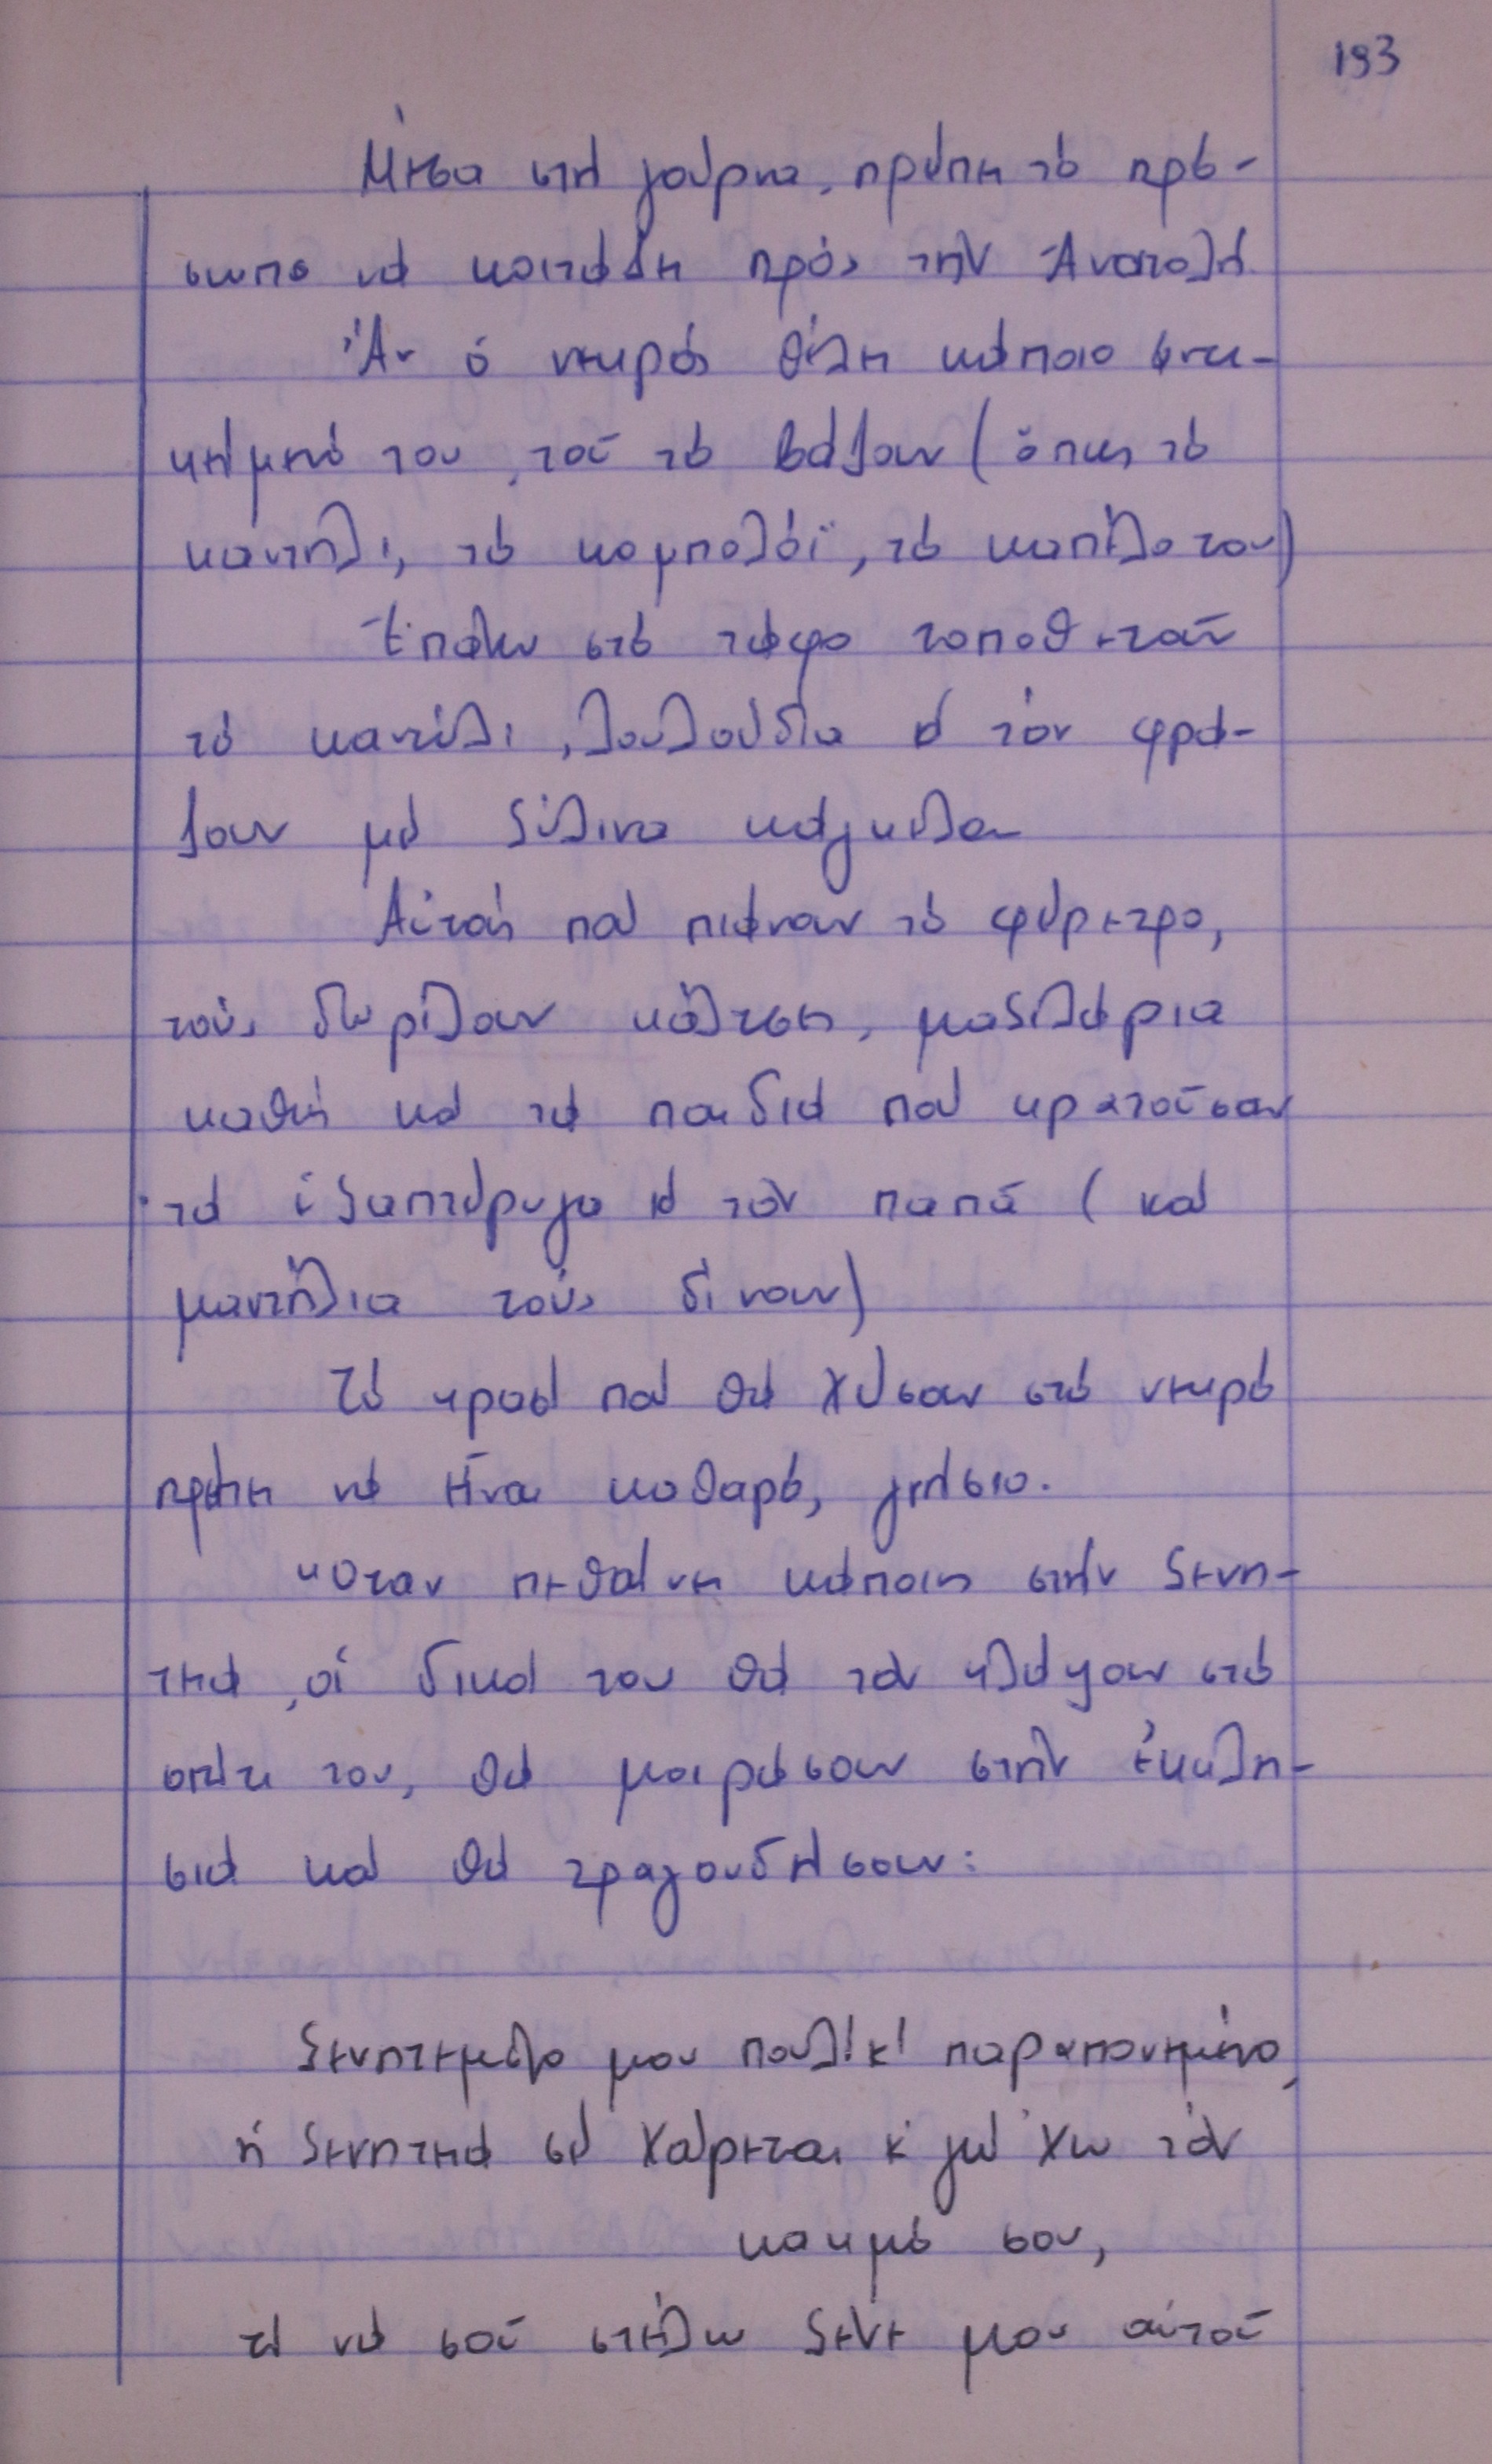 193
Μέσα στή γούρνα, πρέπει τό πρό-
σωπο νά κοιτάζει πρός τήν Ἀνατολή
Ἄν ὁ νεκρός θέλει κάποιο ἀντι-
κείμενό του, τοῦ τό βάζουν (ὅπως τό
καντήλι, τό κομπολόϊ, τό καπέλο του)
Ἐπάνω στό τάφο τοποθετοῦν
τό καντήλι, λουλούδια κί τόν φρά-
ζουν μέ ξύλινα κάγκελα
Αὐτοί πού πιάνουν τό φέρετρο,
τούς δωρίζουν κάλτσες, μαξιλάρια
καθώς καί τά παιδιά πού κρατοῦσαν
τά ἑξαπτέρυγα κί τόν παπά (καί
μαντήλια τούς δίνουν)
Τό κρασί πού θά χύσουν στό νεκρό
πρέπει νά εἶναι καθαρό, γνήσιο.
Ὅταν πεθαίνει κάποιος στήν ξενη-
τειά, οἱ δικοί του θά τόν κλάψουν στό
σπίτι του, θά μοιράσουν στήν ἐκκλη-
σιά καί θά τραγουδήσουν:
Ξενητεμένο μου πουλί κί παραπονεμένο,
ἡ ξενητειά σέ χαίρεται κ' γώ 'χω τόν
καημό σου,
τί νά σοῦ στείλω ξένε μου αὐτοῦ